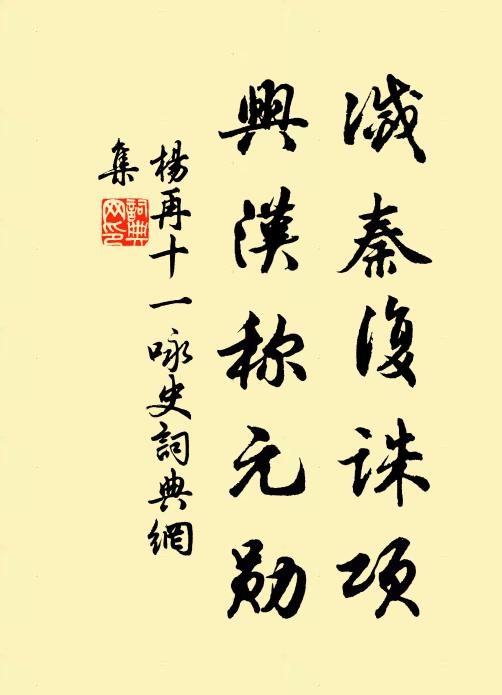 滅秦復誅項
興漢称元勋
楊再十一咏史詞典網
集
詞典网印